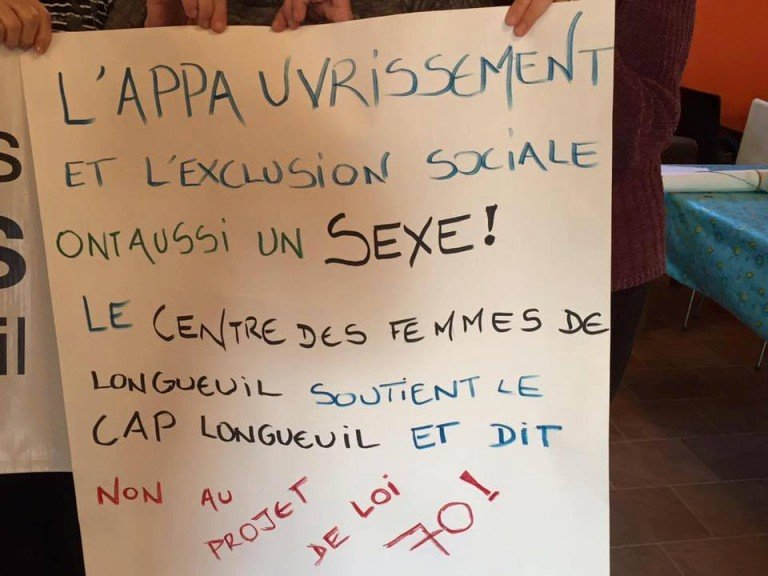 L'APPAUVRISSEMENT
ET L'EXCLUSION SOCIALE
ONT AUSSI UN SEXE!
LE CENTRE DES FEMMES DE
LONGUEUIL SOUTIENT LE
CAP LONGUEUIL ET DIT
NON AU PROJET DE LOI 70!